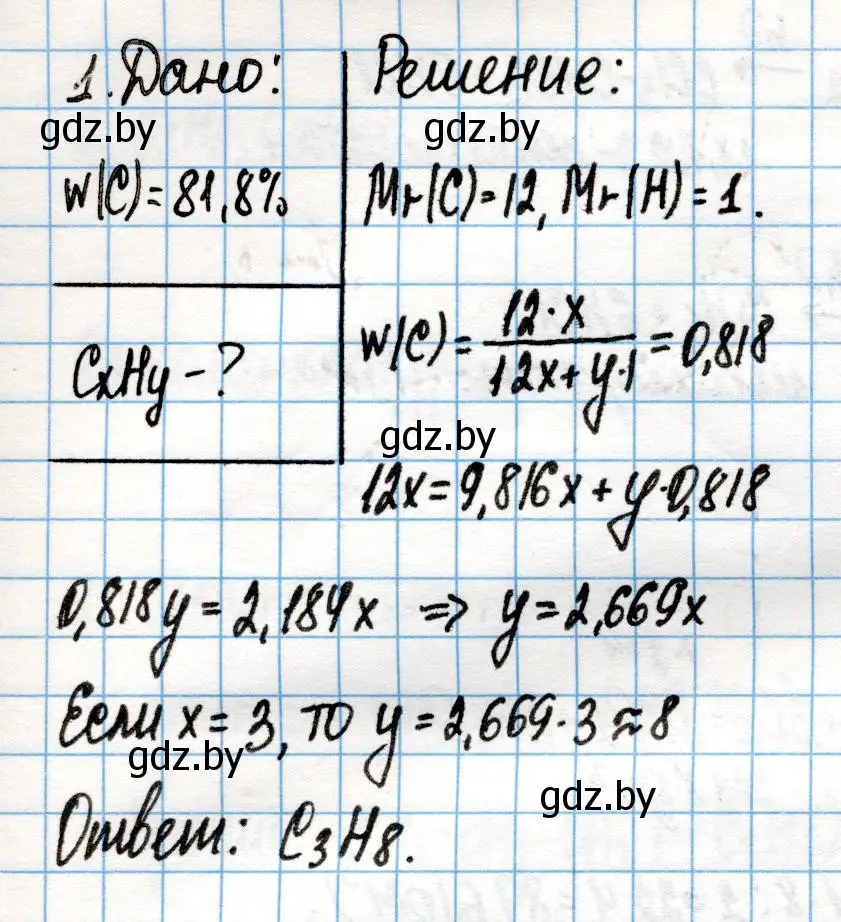 1. Дано:
gdz.by
w(C)=81,8%
CxHy - ?
Решение:
gdz.by
Mr(C)=12, Mr(H)=1.
w(C) = 12·x / 12x+y·1 = 0,818
gdz.by
12x=9,816x+y·0,818
0,818y=2,184x => y=2,669x
Если x=3, то y=2,669·3≈8
gdz.by
gdz.by
Ответ: C3H8.